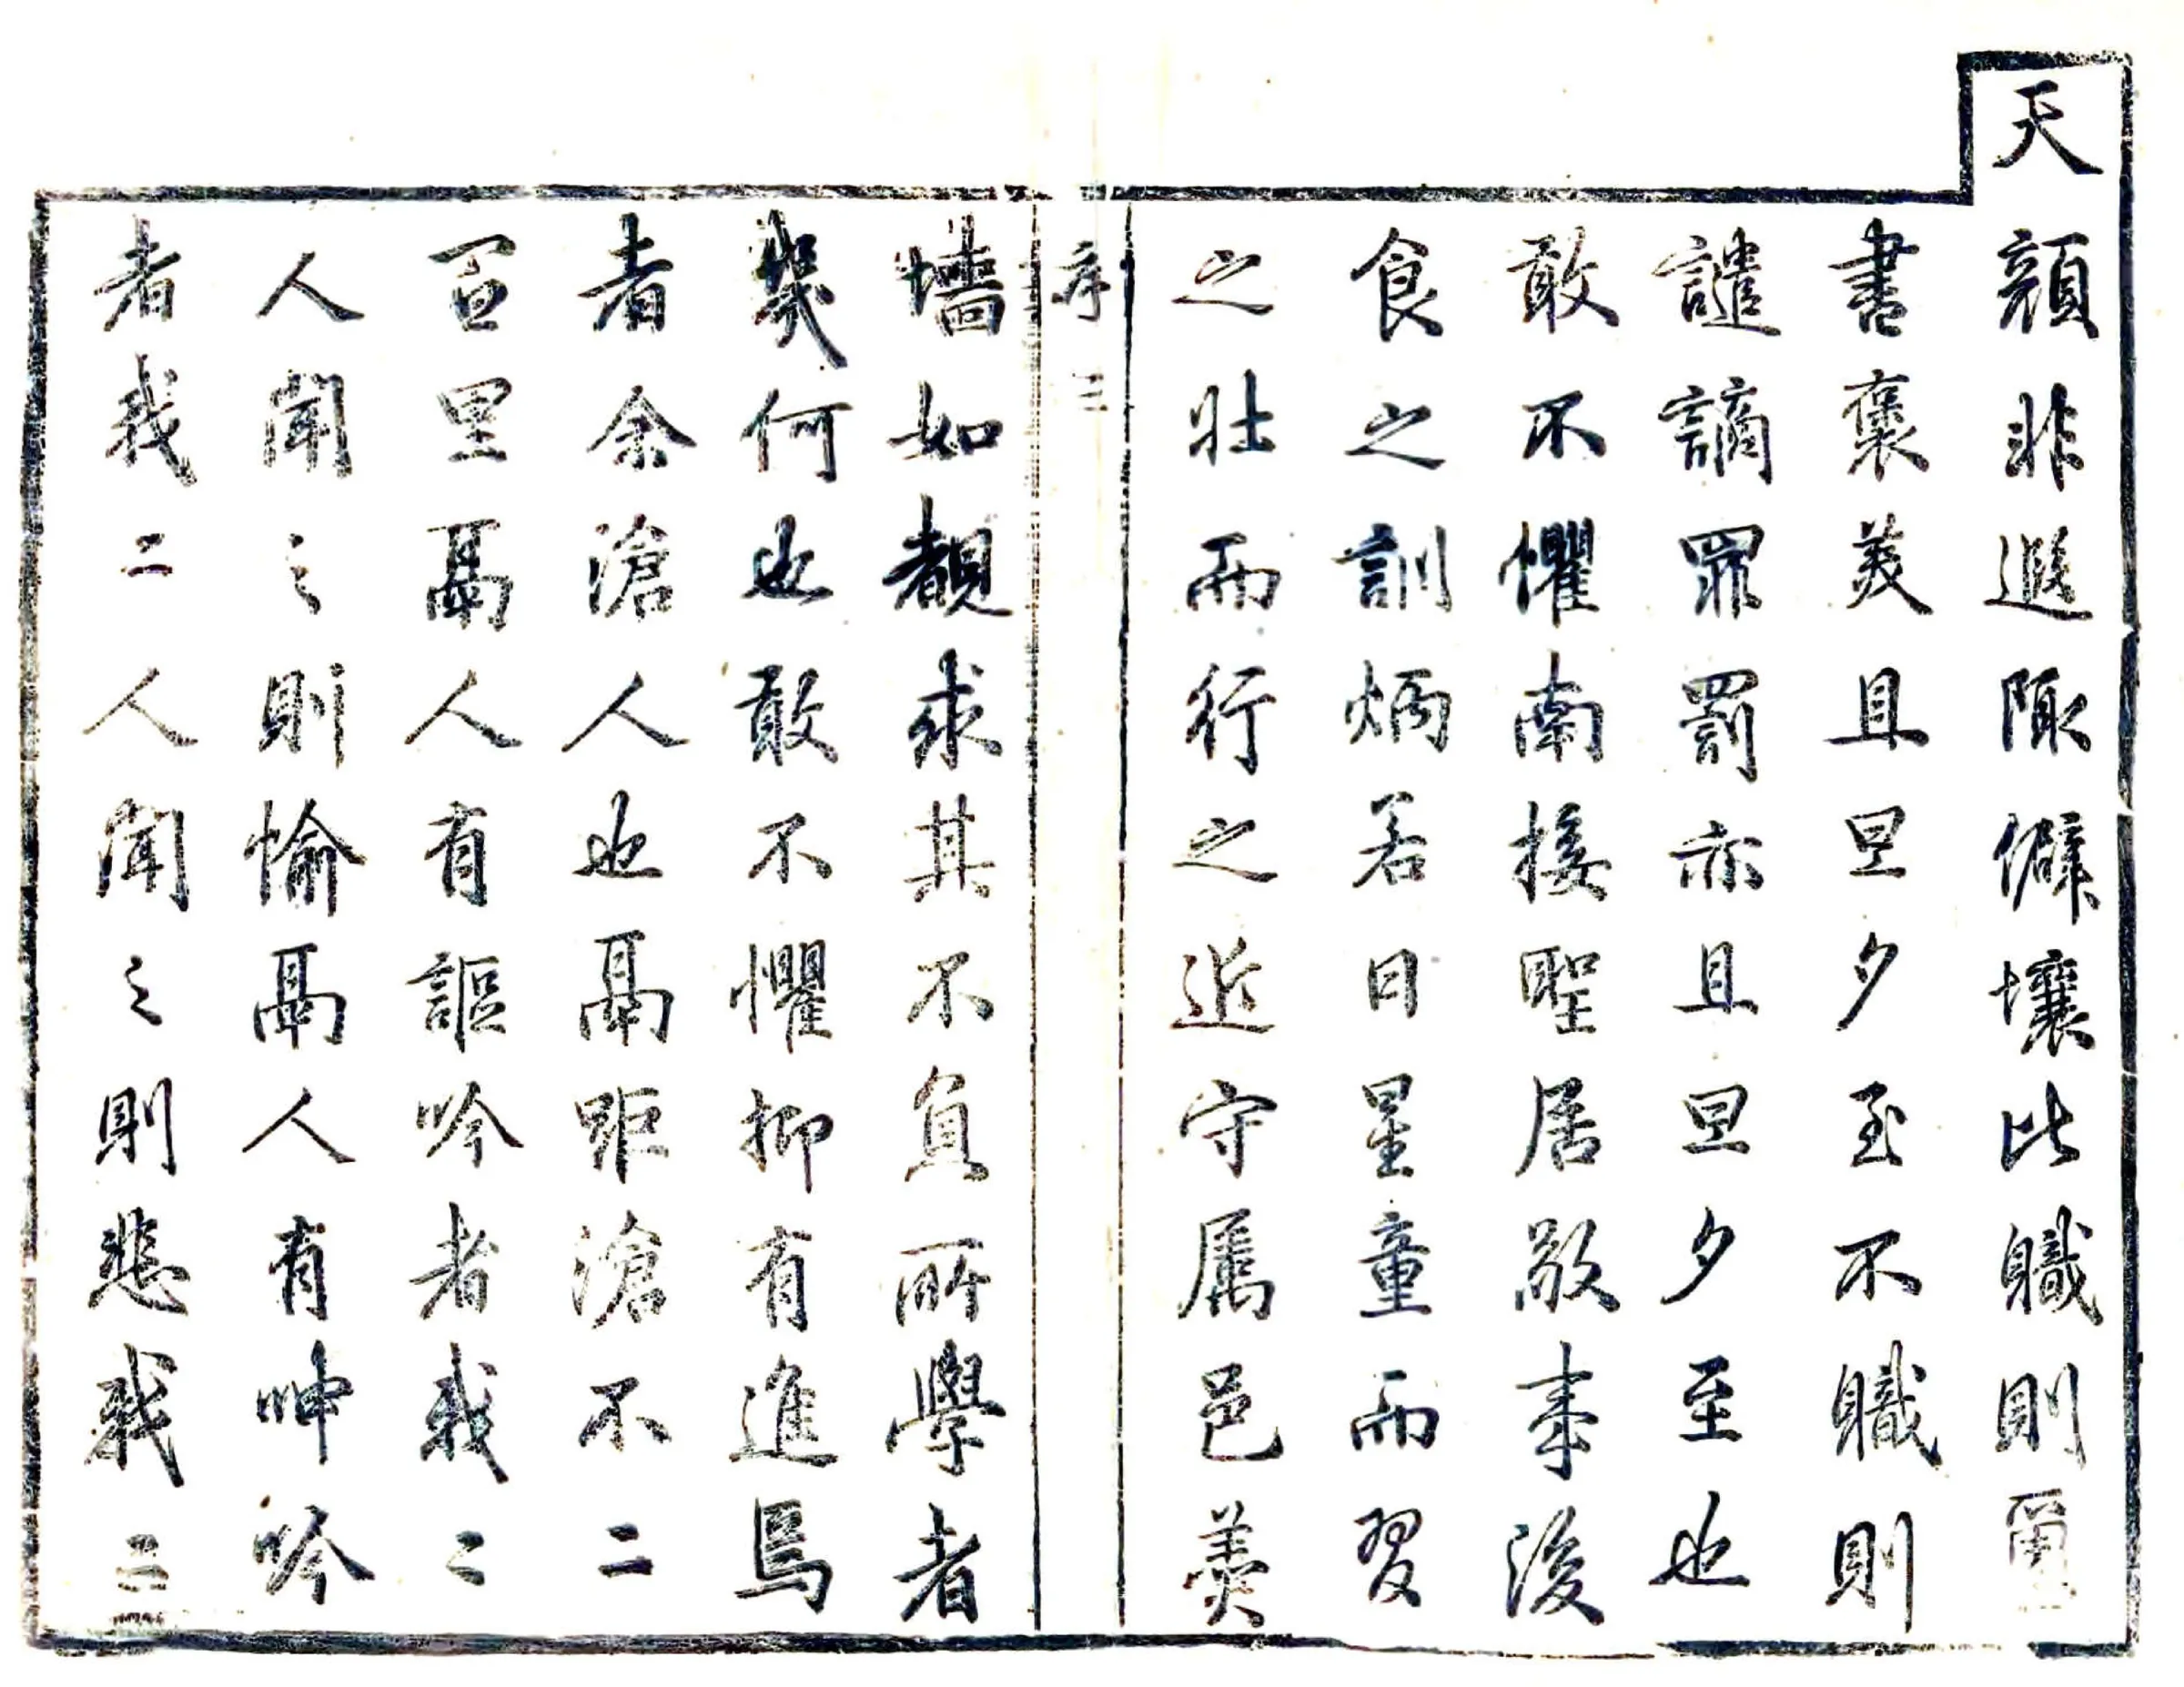 天顏非遐陬僻壤比職則璽
書褒美且旦夕至不職則
譴謫罪罰亦且旦夕至也
敢不懼南接聖居敬事後
食之訓炳若日星童而習
之壯而行之近守属邑羮
序三
墻如覩求其不負所學者
幾何也敢不懼抑有進焉
者余滄人也鬲距滄不二
百里鬲人有謳吟者我二
人聞之則愉鬲人有呻吟
者我二人聞之則悲我